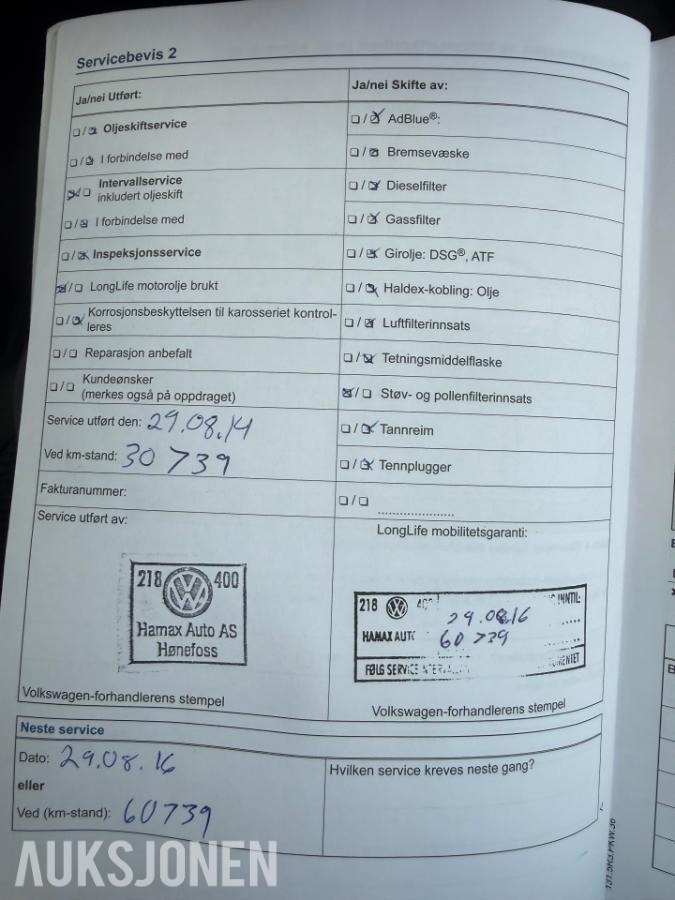 Servicebevis 2
Ja/nei Utført:
☐/☒ Oljeskiftservice
☐/☒ I forbindelse med
☒/☐ Intervallservice
inkludert oljeskift
☐/☒ I forbindelse med
☐/☒ Inspeksjonsservice
☒/☐ LongLife motorolje brukt
☐/☒ Korrosjonsbeskyttelsen til karosseriet kontrol-
leres
☐/☐ Reparasjon anbefalt
☐/☐ Kundeønsker
(merkes også på oppdraget)
Service utført den: 29.08.14
Ved km-stand: 30 739
Fakturanummer:
Ja/nei Skifte av:
☐/☒ AdBlue®:
☐/☒ Bremsevæske
☐/☒ Dieselfilter
☐/☒ Gassfilter
☐/☒ Girolje: DSG®, ATF
☐/☒ Haldex-kobling: Olje
☐/☒ Luftfilterinnsats
☐/☒ Tetningsmiddelflaske
☒/☐ Støv- og pollenfilterinnsats
☐/☒ Tannreim
☐/☒ Tennplugger
☐/☐ ....................
Service utført av:
218 VW 400
Hamax Auto AS
Hønefoss
Volkswagen-forhandlerens stempel
LongLife mobilitetsgaranti:
218 VW
29.08.16
HAMAX AUTO 60 739
FØLG SERVICE
Volkswagen-forhandlerens stempel
Neste service
Dato: 29.08.16
eller
Ved (km-stand): 60739
Hvilken service kreves neste gang?
131.5R3.PKW.36
AUKSJONEN